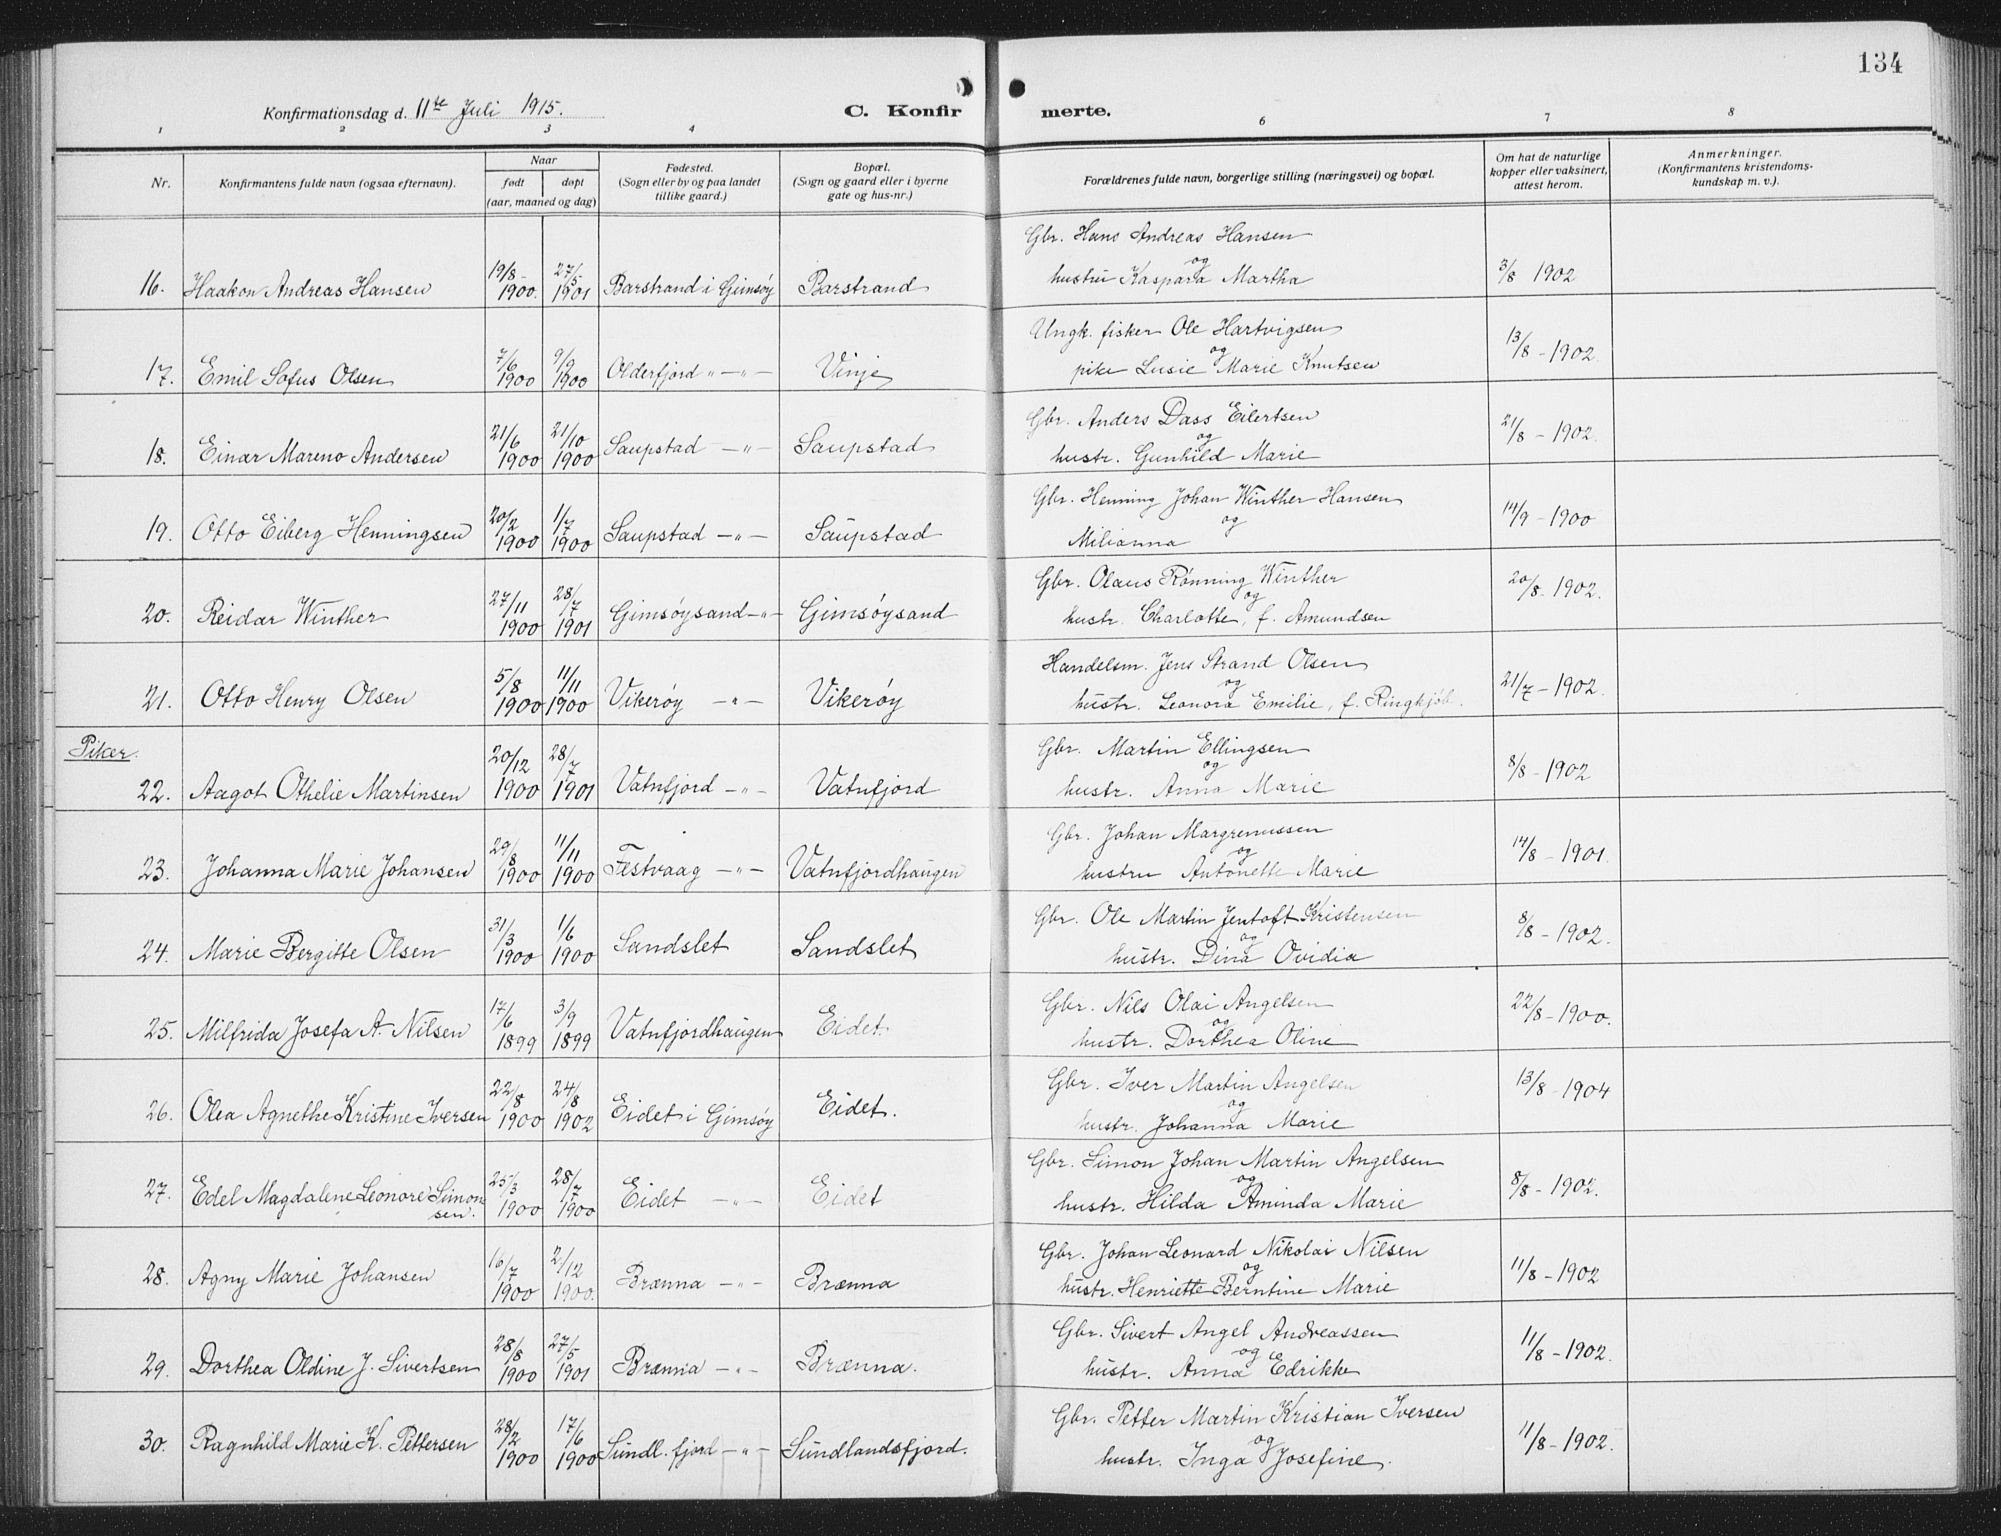 134
Konfirmationsdag d. 11te Juli 1915.
C. Konfirmerte.
1 2 3 4 6 7 8
Nr.
Konfirmantens fulde navn (ogsaa efternavn).
Naar
født døpt
(aar, maaned og dag)
Fødested.
(Sogn eller by og paa landet
tillike gaard.)
Bopæl.
(Sogn og gaard eller i byerne
gate og hus-nr.)
Forældrenes fulde navn, borgerlige stilling (næringsvei) og bopæl.
Om hat de naturlige
kopper eller vaksinert,
attest herom.
Anmerkninger.
(Konfirmantens kristendoms-
kundskap m. v.).
Gbr. Hans Andreas Hansen
og
16. Haakon Andreas Hansen 19/8-1900. 27/5 1901 Barstrand i Gimsøy Barstrand hustru Kaspara Martha 3/8 1902
Ungk. fisker Ole Hartvigsen
og
17. Emil Sofus Olsen 7/6 1900 9/9 1900 Olderfjord " — " — Vinje pike Lusie Marie Knutsen 13/8 - 1902.
Gbr. Anders Dass Eilertsen
og
18. Einar Mareno Andersen 21/6 1900 21/10 1900 Saupstad — " — Saupstad hustr. Gunhild Marie 21/8 - 1902.
Gbr. Henning Johan Winther Hansen
og
19. Otto Eiberg Henningsen 20/2 1900 1/7 1900 Saupstad — " — Saupstad Milianna 14/9 - 1900
Gbr. Olaus Rønning Winther
og
20. Reidar Winther 27/11 1900 28/7 1901 Gimsøysand — " — Gimsøysand hustr. Charlotte, f. Amundsen 20/8 - 1902.
Handelsm. Jens Strand Olsen
og
21. Otto Henry Olsen 5/8 1900 11/11 1900 Vikerøy — " — Vikerøy hustr. Leonora Emilie, f. Ringkjøb. 21/7 - 1902.
Piker.
Gbr. Martin Ellingsen
og
22. Aagot Othelie Martinsen 20/12 1900 28/7 1901 Vatnfjord — " — Vatnfjord hustr. Anna Marie 8/8 - 1902
Gbr. Johan Margrenussen
og
23. Johanna Marie Johansen 29/8 1900 11/11 1900 Festvaag — " — Vatnfjordhaugen hustru Antonette Marie 14/8 - 1901.
Gbr. Ole Martin Jentoft Kristensen
og
24. Marie Bergitte Olsen 31/3 1900 1/6 1900 Sandslet Sandslet hustr. Dina Ovidia 8/8 - 1902.
Gbr. Nils Olai Angelsen
og
25. Milfrida Josefa A. Nilsen 17/6 1899 3/9 1899 Vatnfjordhaugen Eidet. hustr. Dorthea Oline 22/8 - 1900.
Gbr. Iver Martin Angelsen
og
26. Olea Agnethe Kristine Iversen 22/8 1900 24/8 1902 Eidet i Gimsøy Eidet. hustr. Johanna Marie 13/8 - 1904
Gbr. Simon Johan Martin Angelsen
og
27. Edel Magdalene Leonore Simonsen. 25/3 1900 28/7 1900 Eidet — " — Eidet hustr. Hilda Aminda Marie 8/8 - 1902.
Gbr. Johan Leonard Nikolai Nilsen
og
28. Agny Marie Johansen 16/7 1900 2/12 1900. Brænna — " — Brænna hustr. Henriette Berntine Marie 11/8 - 1902
Gbr. Sivert Angel Andreassen
og
29. Dorthea Oldine J. Sivertsen 28/8 1900 27/5 1901 Brænna — " — Brænna. hustr. Anna Edrikke 11/8 - 1902.
Gbr. Petter Martin Kristian Iversen
og
30. Ragnhild Marie K. Pettersen 28/2 1900 17/6 1900 Sundl. fjord — " — Sundlandsfjord. hustr. Inga Josefine. 11/8 - 1902.